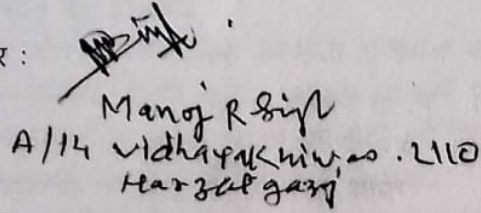 र :
Manoj R Singh
A/14 Vidhayak niwas . LKO
Hazratganj